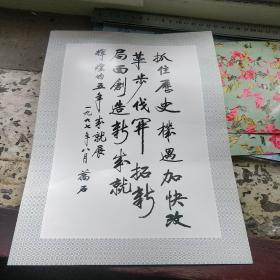 抓住歷史機遇加快改
革步伐開拓新
局面創造新成就
輝煌的五年成就展
一九九七年八月 蕭石